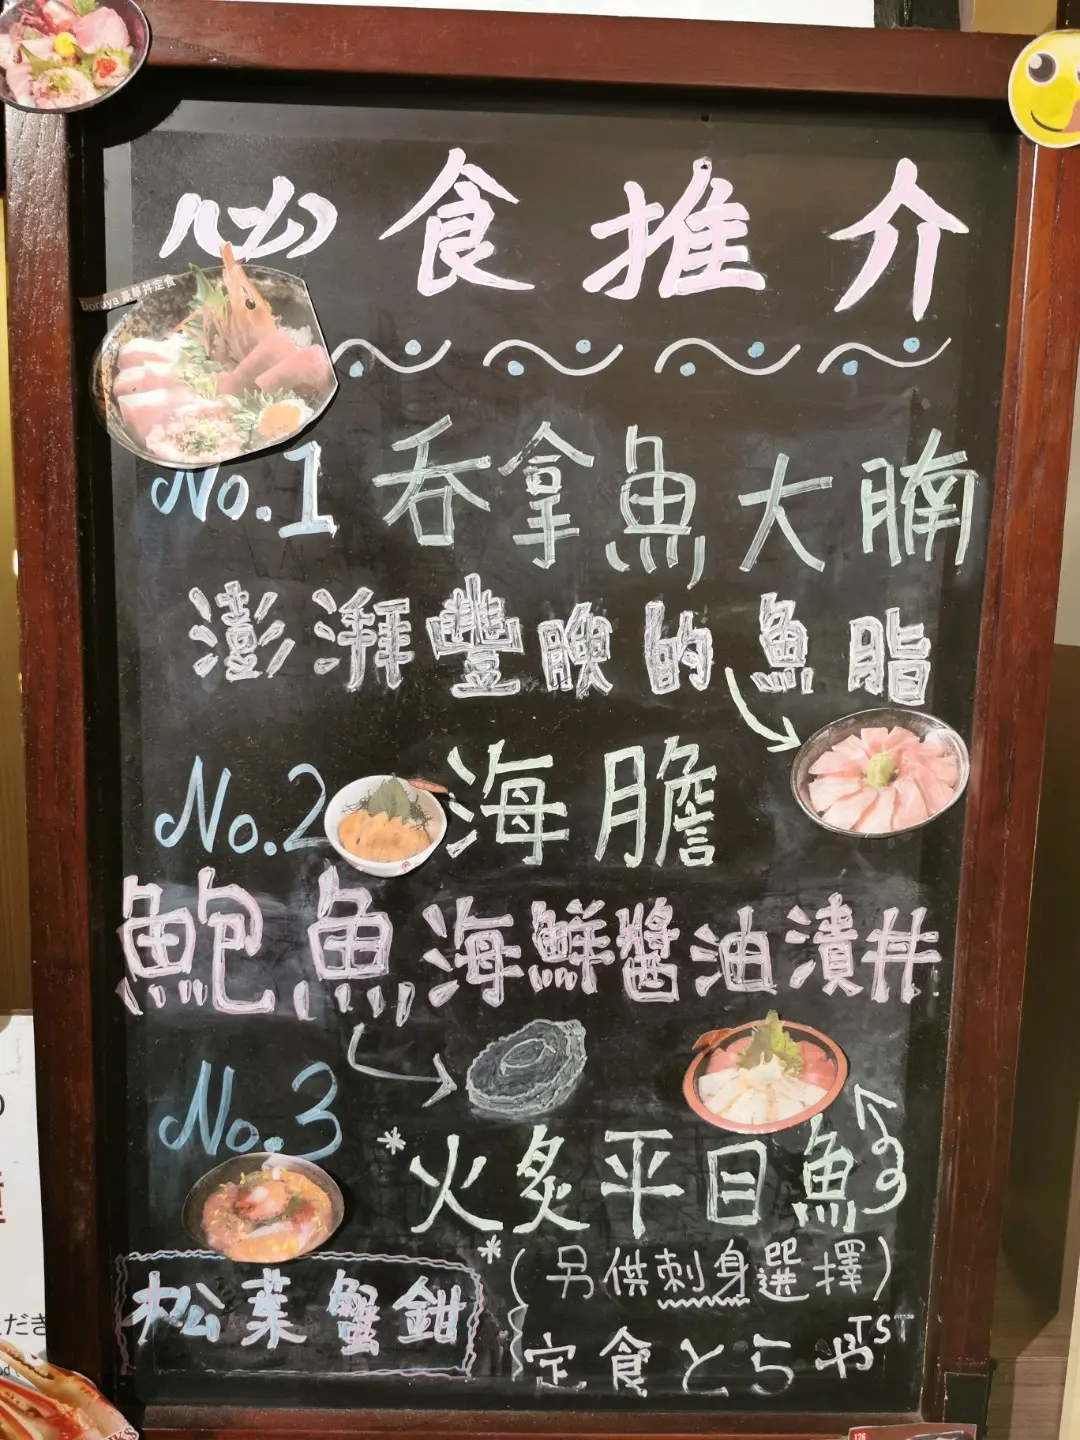 必食推介
Doraya 豪華丼定食
No.1 吞拿魚大腩
澎湃豐腴的魚脂
No.2 海膽
鮑魚海鮮醬油漬丼
No.3
*火炙平目魚
*(另供刺身選擇)
松葉蟹鉗
定食とらや TST
の
ださ
176